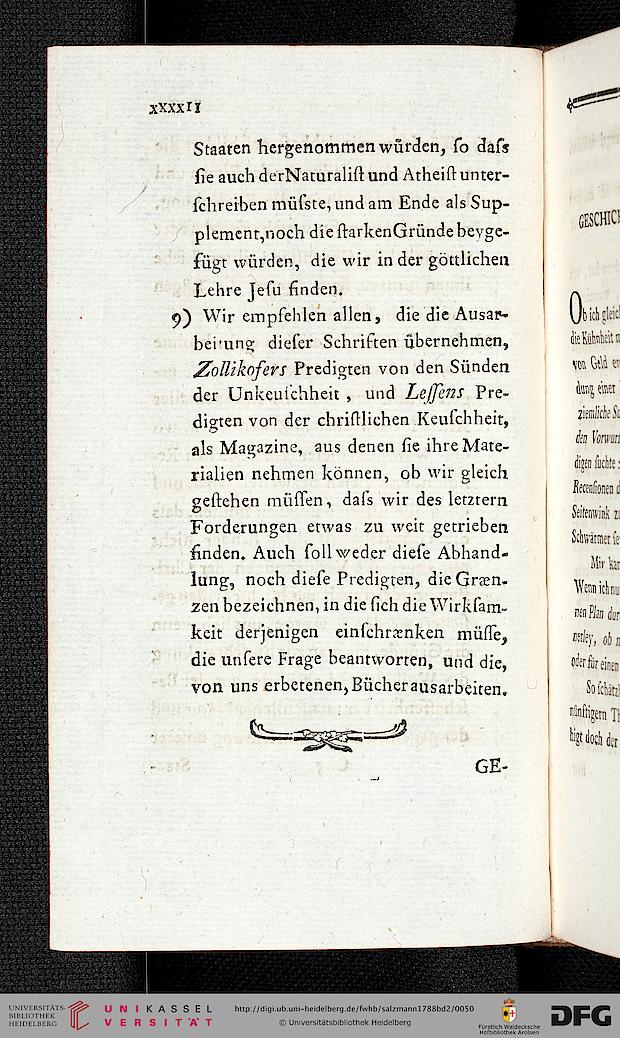 xxxxII
Staaten hergenommen würden, ſo daſs
ſie auch derNaturaliſt und Atheiſt unter-
ſchreiben müſste, und am Ende als Sup-
plement,noch die ſtarkenGründe beyge-
fügt würden, die wir in der göttlichen
Lehre Jeſu finden.
9) Wir empfehlen allen, die die Ausar-
beitung dieſer Schriften übernehmen,
Zollikofers Predigten von den Sünden
der Unkeuſchheit, und Leſſens Pre-
digten von der chriſtlichen Keuſchheit,
als Magazine, aus denen ſie ihre Mate-
rialien nehmen können, ob wir gleich
geſtehen müſſen, daſs wir des letztern
Forderungen etwas zu weit getrieben
finden. Auch ſoll weder dieſe Abhand-
lung, noch dieſe Predigten, die Græn-
zen bezeichnen, in die ſich die Wirkſam-
keit derjenigen einſchrænken müſſe,
die unſere Frage beantworten, und die,
von uns erbetenen, Bücher ausarbeiten.
GE-
GESCHICH
Ob ich gleich
die Kühnheit
von Geld
dung einer
ziemliche
den Vorwurf
digen ſuchte
Recenſionen
Seitenwink
Schwärmer
Mir
Wenn ich
nen Plan
oder für einen
So
higt doch der
UNIVERSITÄTS-
BIBLIOTHEK
HEIDELBERG
UNIKASSEL
VERSITÄT
http://digi.ub.uni-heidelberg.de/fwhb/salzmann1788bd2/0050
© Universitätsbibliothek Heidelberg
Fürstlich Waldecksche
Hofbibliothek Arolsen
DFG